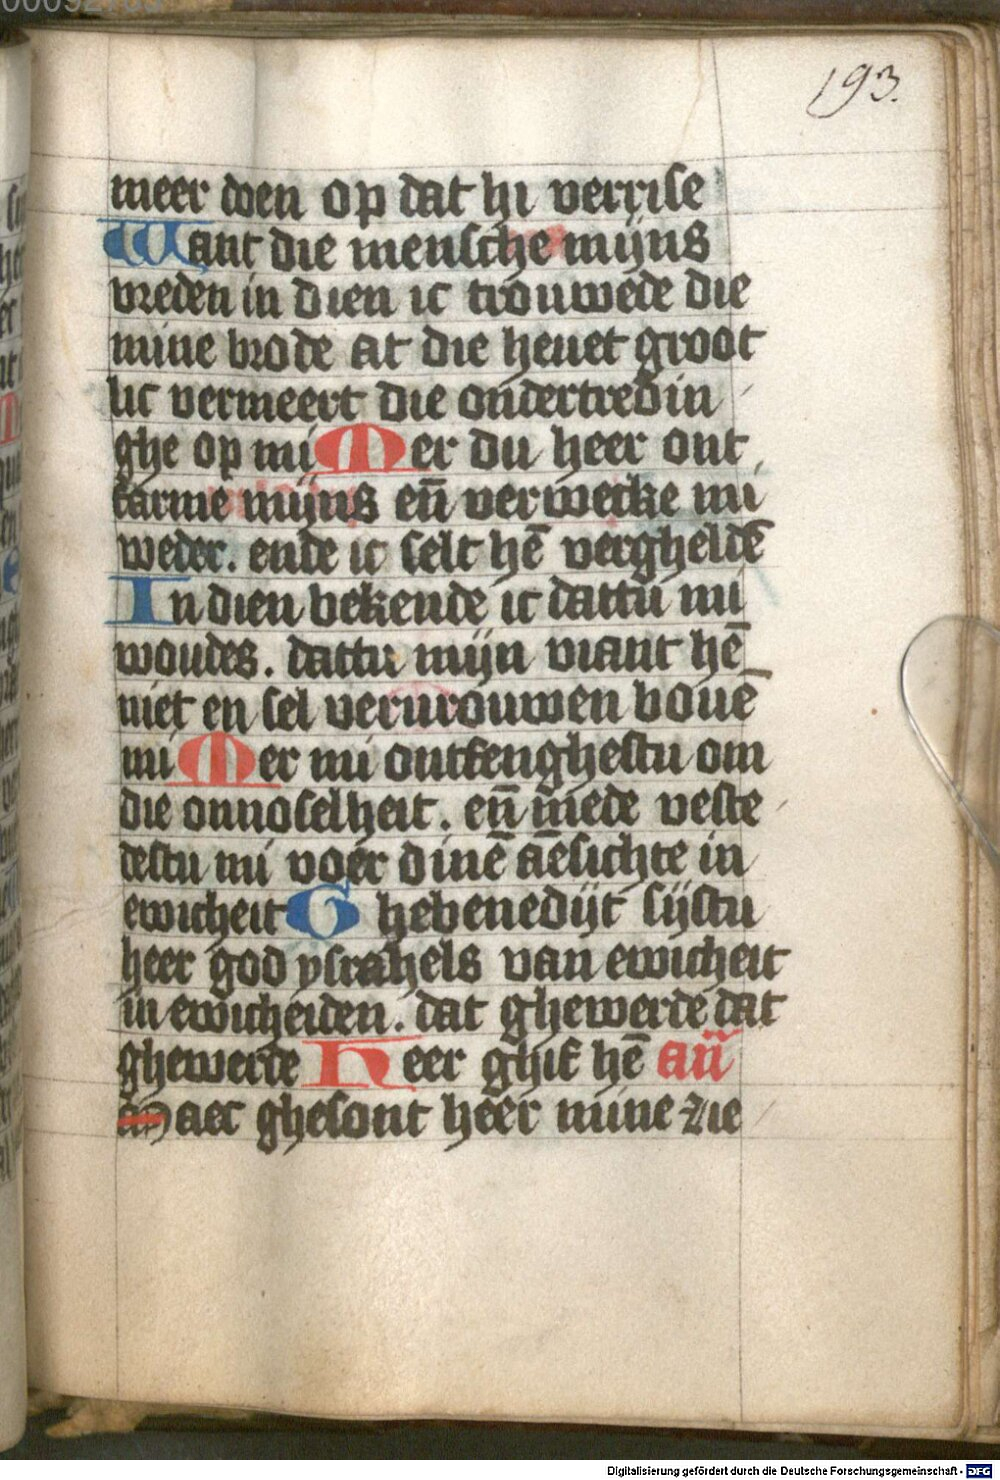 193.
meer doen op dat hi verrise
Want die mensche mijns
vreden in dien ic trouwede die
mine brode at die heuet groot
lic vermeert die ondertredin
ghe op mi Mer du heer ont
farme mijns eñ verwecke mi
weder. ende ic selt hē vergheldē
In dien bekende ic dattu mi
woudes. dattu mijn viant hē
niet en sel vervrouwen bouē
mi Mer mi ontfenghestu om
die onnoselheit. eñ mede veste
destu mi voer dinē aēsichte in
ewicheit Ghebenedijt sijstu
heer god ysrahels van ewicheit
in ewicheiden. dat ghewerde dat
ghewerde Heer ghif hē añ
Maec ghesont heer mine zie
Digitalisierung gefördert durch die Deutsche Forschungsgemeinschaft - DFG